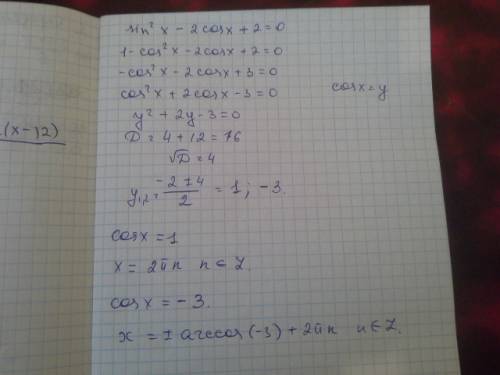 sin² x - 2cosx + 2 = 0
1 - cos² x - 2cosx + 2 = 0
- cos² x - 2cosx + 3 = 0
cos² x + 2cosx - 3 = 0
cosx = y
y² + 2y - 3 = 0
(x-12)
D = 4 + 12 = 76
√D = 4
y₁,₂ = (-2 ± 4)/2 = 1 ; -3.
cosx = 1
x = 2πn n ∈ Z.
cosx = -3.
x = ± arccos(-3) + 2πn n ∈ Z.